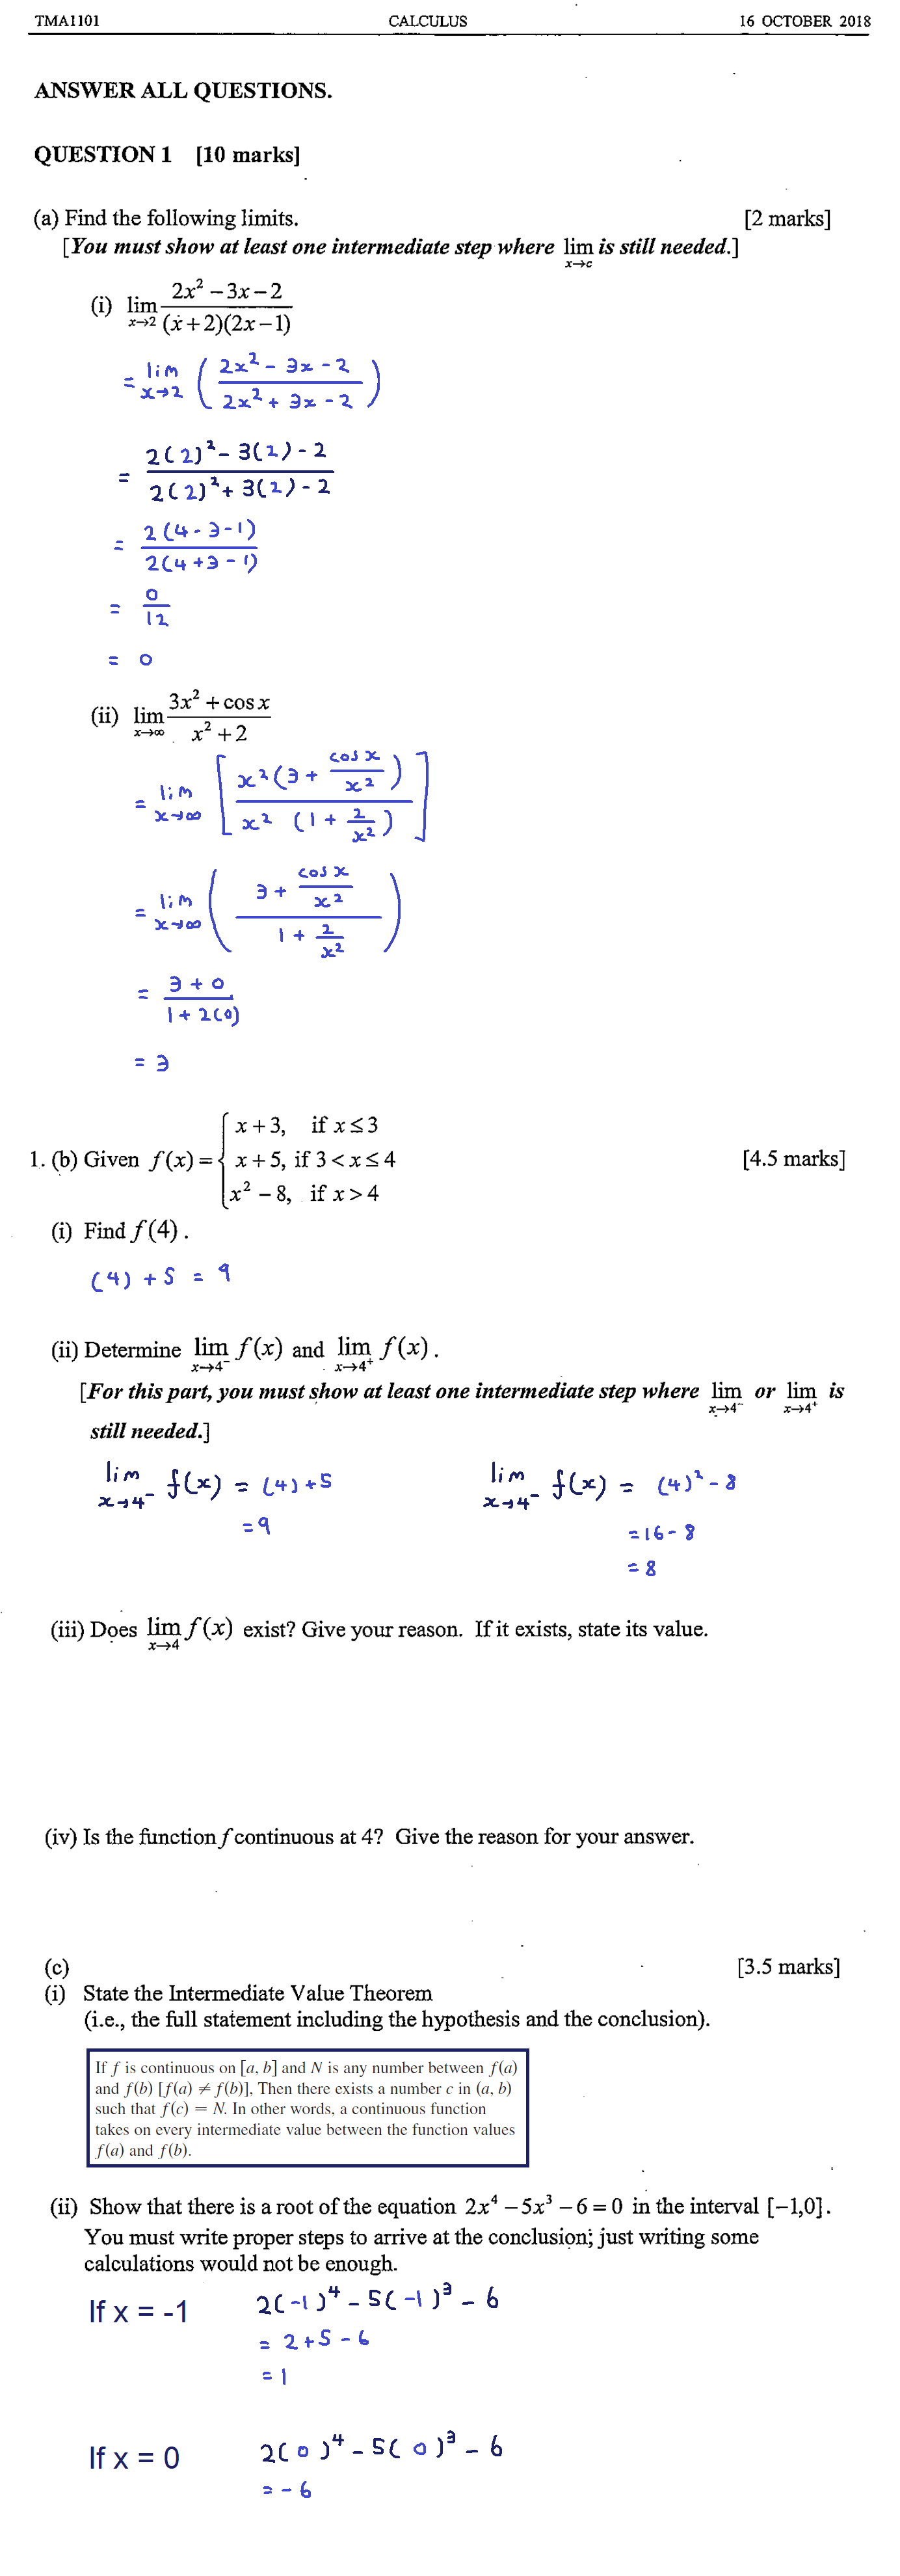 TMA1101 CALCULUS 16 OCTOBER 2018
ANSWER ALL QUESTIONS.
QUESTION 1 [10 marks]
(a) Find the following limits. [2 marks]
[You must show at least one intermediate step where lim x→c is still needed.]
(i) lim x→2 (2x² − 3x − 2) / ((x + 2)(2x − 1))
= lim x→2 ( (2x² − 3x − 2) / (2x² + 3x − 2) )
= (2(2)² − 3(2) − 2) / (2(2)² + 3(2) − 2)
= 2(4 − 3 − 1) / 2(4 + 3 − 1)
= 0 / 12
= 0
(ii) lim x→∞ (3x² + cos x) / (x² + 2)
= lim x→∞ [ x² (3 + cos x / x²) / x² (1 + 2 / x²) ]
= lim x→∞ ( (3 + cos x / x²) / (1 + 2 / x²) )
= (3 + 0) / (1 + 2(0))
= 3
1. (b) Given f(x) = { x + 3, if x ≤ 3 [4.5 marks]
x + 5, if 3 < x ≤ 4
x² − 8, if x > 4
(i) Find f(4).
(4) + 5 = 9
(ii) Determine lim x→4⁻ f(x) and lim x→4⁺ f(x).
[For this part, you must show at least one intermediate step where lim x→4⁻ or lim x→4⁺ is
still needed.]
lim x→4⁻ f(x) = (4) + 5 lim x→4⁻ f(x) = (4)² − 8
= 9 = 16 − 8
= 8
(iii) Does lim x→4 f(x) exist? Give your reason. If it exists, state its value.
(iv) Is the function f continuous at 4? Give the reason for your answer.
(c) [3.5 marks]
(i) State the Intermediate Value Theorem
(i.e., the full statement including the hypothesis and the conclusion).
If f is continuous on [a, b] and N is any number between f(a)
and f(b) [f(a) ≠ f(b)], Then there exists a number c in (a, b)
such that f(c) = N. In other words, a continuous function
takes on every intermediate value between the function values
f(a) and f(b).
(ii) Show that there is a root of the equation 2x⁴ − 5x³ − 6 = 0 in the interval [−1,0].
You must write proper steps to arrive at the conclusion; just writing some
calculations would not be enough.
If x = -1 2(−1)⁴ − 5(−1)³ − 6
= 2 + 5 − 6
= 1
If x = 0 2(0)⁴ − 5(0)³ − 6
= − 6